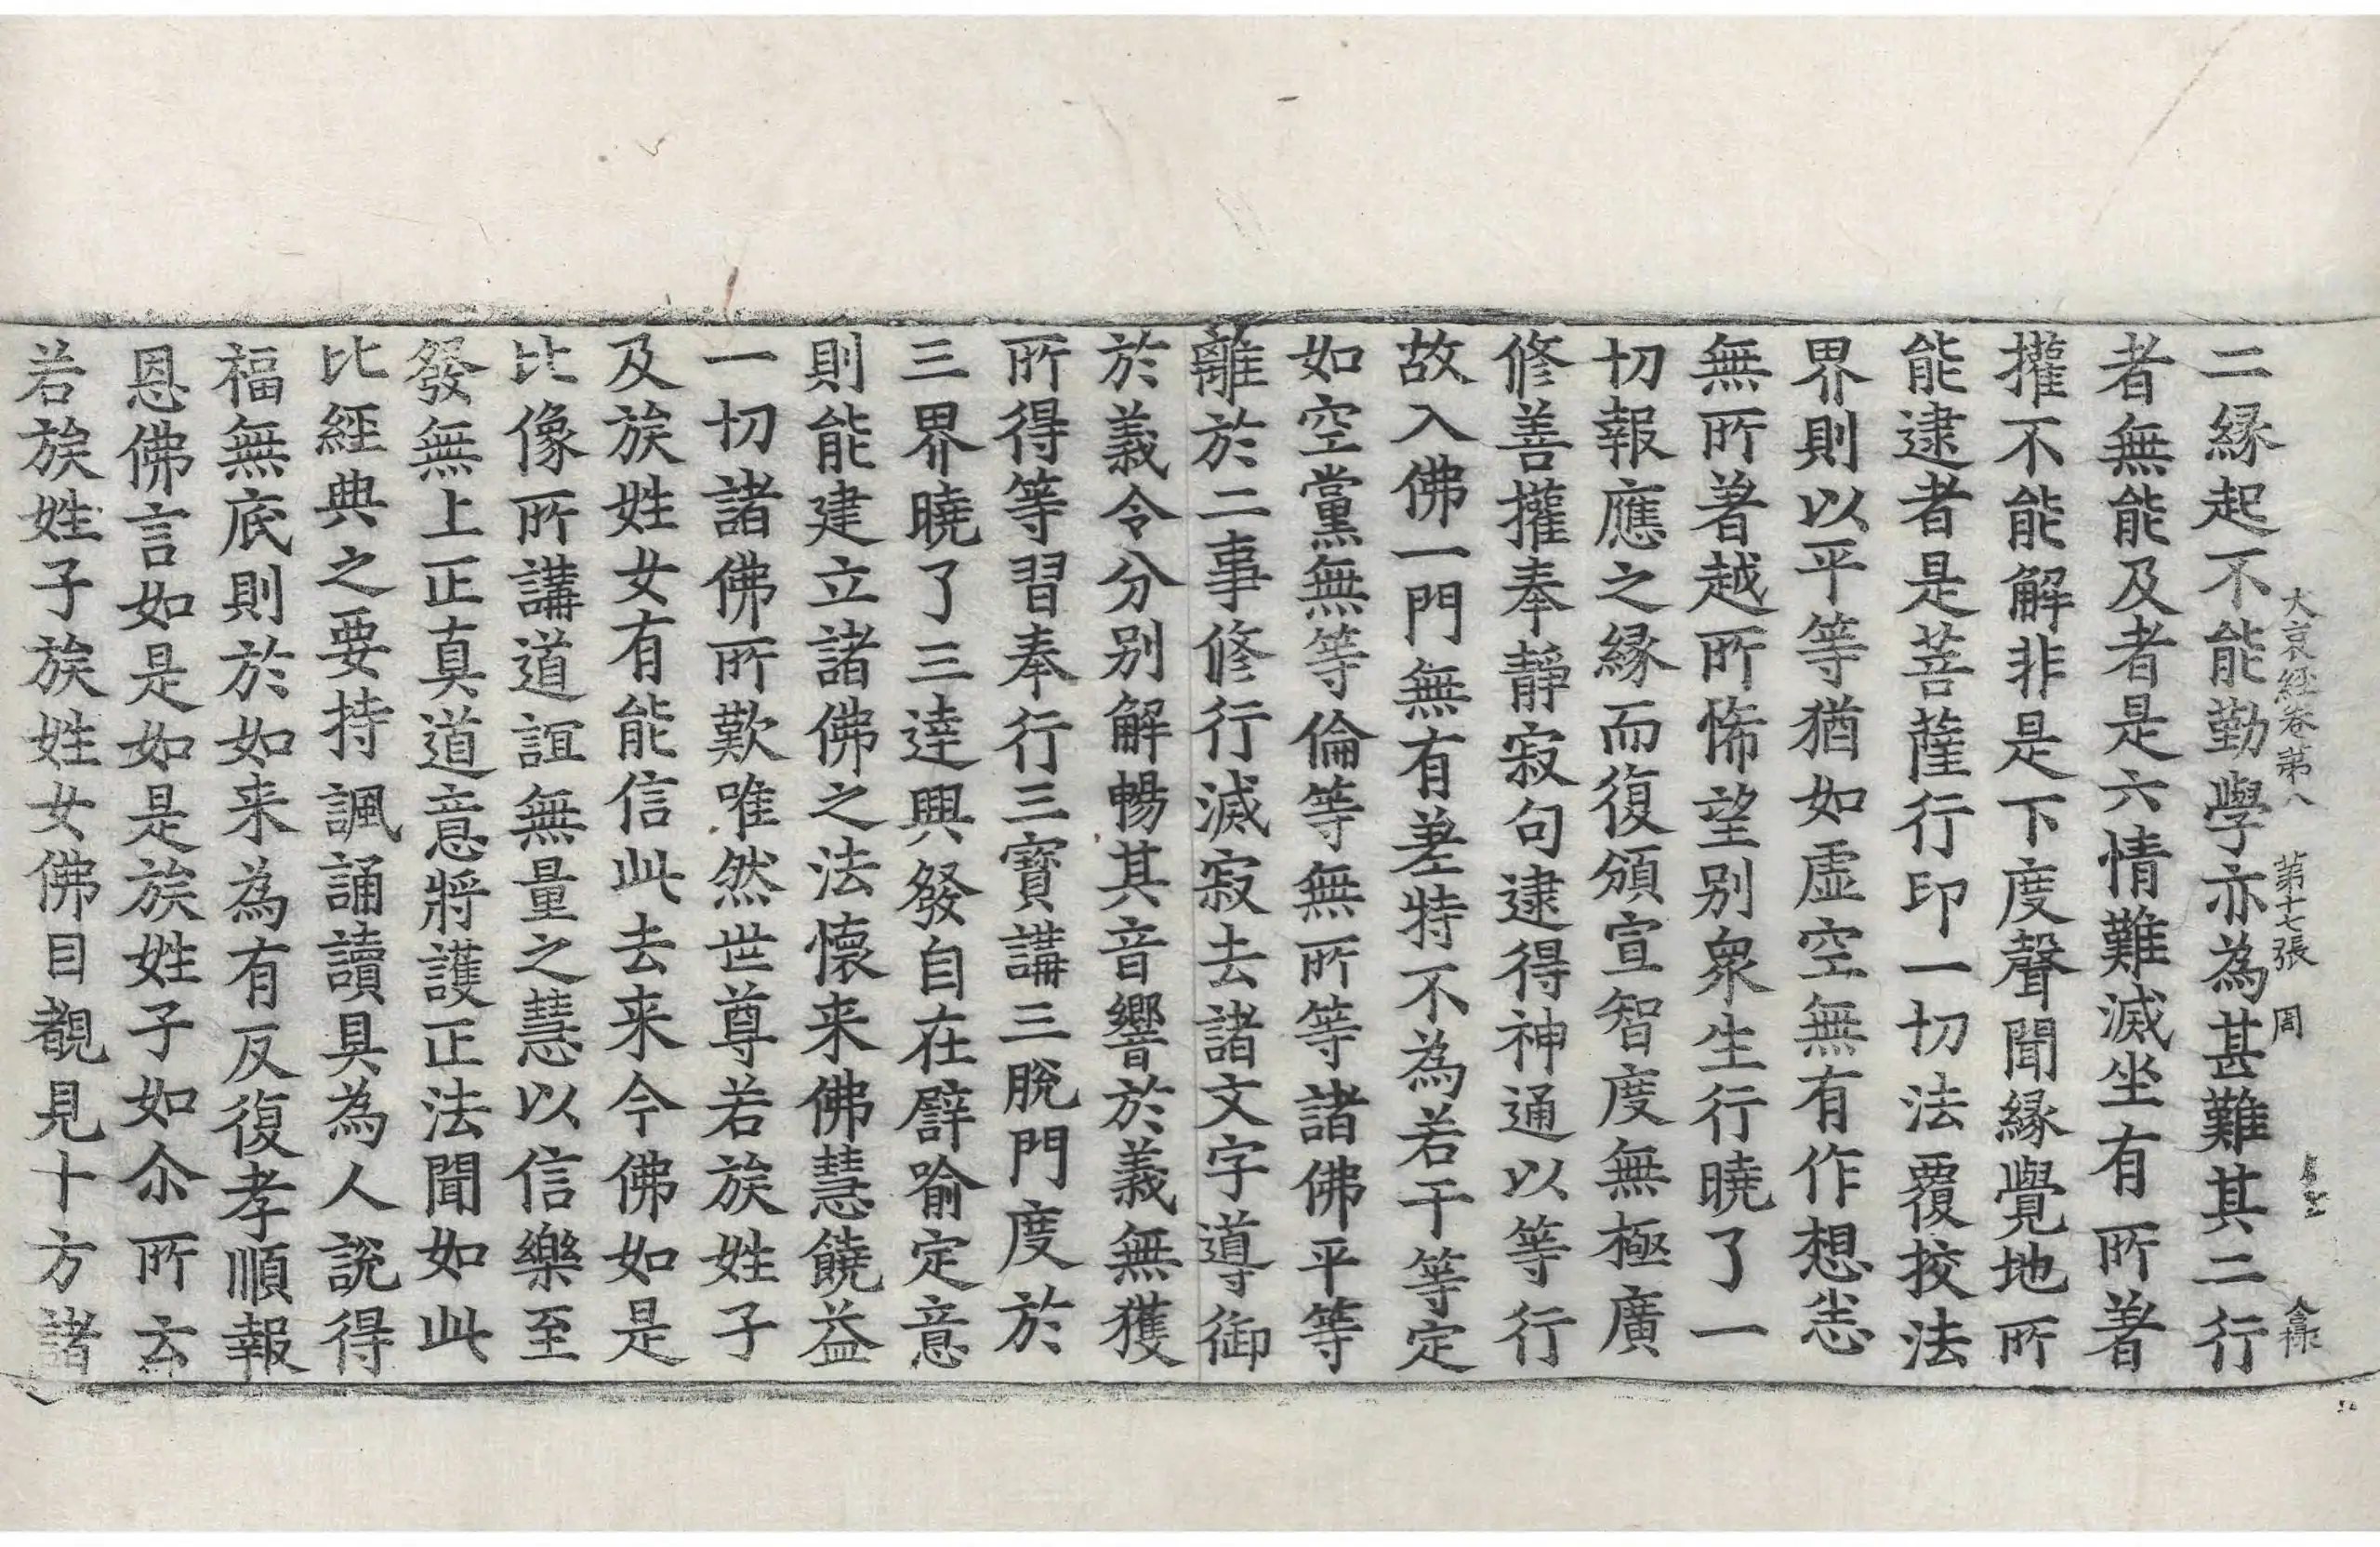 大哀經卷第八 第十七張 周
二縁起不能勤學亦為甚難其二行
者無能及者是六情難滅坐有所著
攉不能解非是下度聲聞縁覺地所
能逮者是菩薩行印一切法覆挍法
界則以平等猶如虛空無有作想恙
無所著越所悕望别衆生行曉了一
切報應之縁而復頒宣智度無極廣
修善攉奉靜寂句逮得神通以等行
故入佛一門無有差特不為若干等定
如空黨無等倫等無所等諸佛平等
離於二事修行滅寂去諸文字導御
於義令分别解暢其音響於義無獲
所得等習奉行三寶講三脫門度於
三界曉了三達興發自在譬喻定意
則能建立諸佛之法懷来佛慧饒益
一切諸佛所歎唯然世尊若族姓子
及族姓女有能信此去来今佛如是
比像所講道誼無量之慧以信樂至
發無上正真道意將護正法聞如此
比經典之要持諷誦讀具為人說得
福無底則於如来為有反復孝順報
恩佛言如是如是族姓子如尒所玄
若族姓子族姓女佛目覩見十方諸